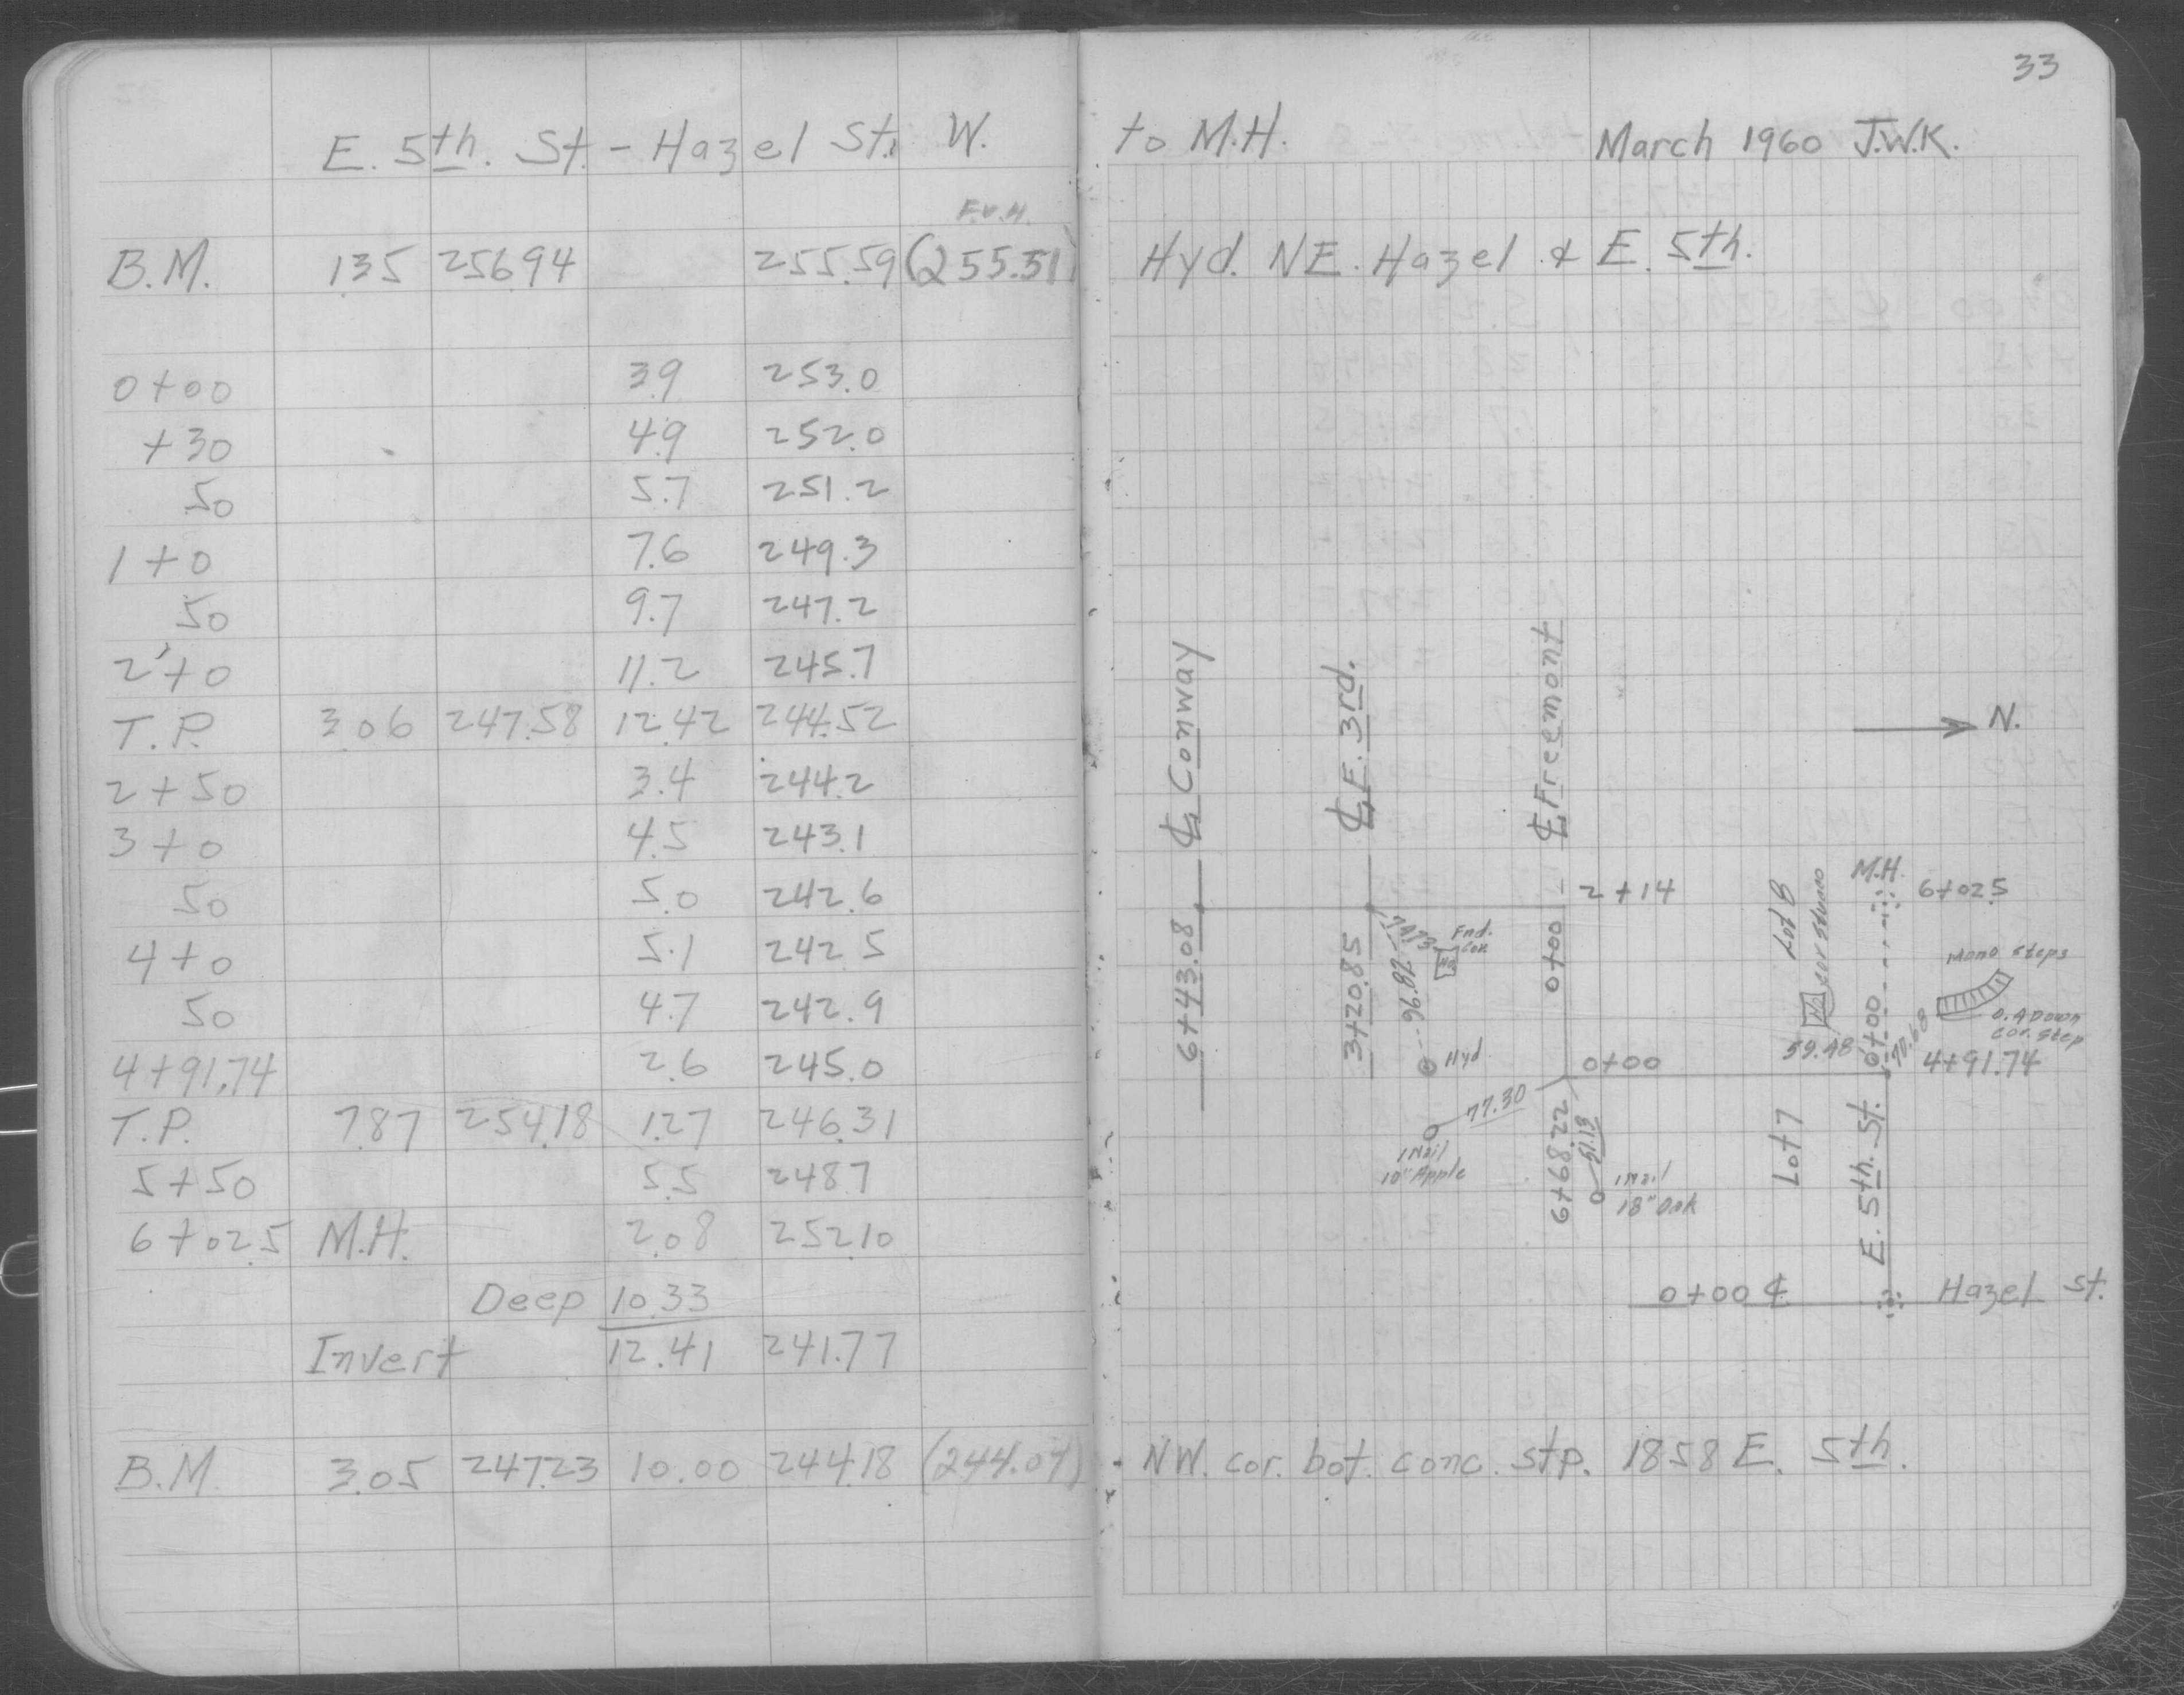 33
E. 5th. St. - Hazel St. W. to M.H. March 1960 J.W.K.
F.V.H.
B.M. 1.35 256.94 255.59 (255.51) Hyd. NE. Hazel & E. 5th.
0+00 3.9 253.0
+30 4.9 252.0
50 5.7 251.2
1+0 7.6 249.3
50 9.7 247.2
2+0 11.2 245.7
T.P. 3.06 247.58 12.42 244.52
2+50 3.4 244.2
3+0 4.5 243.1
50 5.0 242.6
4+0 5.1 242.5
50 4.7 242.9
4+91.74 2.6 245.0
T.P. 7.87 254.18 1.27 246.31
5+50 5.5 248.7
6+02.5 M.H. 2.08 252.10
Deep 10.33
Invert 12.41 241.77
B.M. 3.05 247.23 10.00 244.18 (244.04) NW. cor. bot. conc. stp. 1858 E. 5th.
℄ Conway
℄ E. 3rd.
℄ Freemont
N.
6+43.08
3+20.85
0+00
2+14
Lot 8
cor stucco
M.H.
6+02.5
Fnd.
Cor.
78.96
Hyd
0+00
59.48
0+00
70.68
Mono steps
0.4 Down
cor. step
4+91.74
77.30
1 Nail
10" Apple
6+68.22
51.13
1 Nail
18" Oak
Lot 7
E. 5th. St.
0+00 ℄ Hazel St.